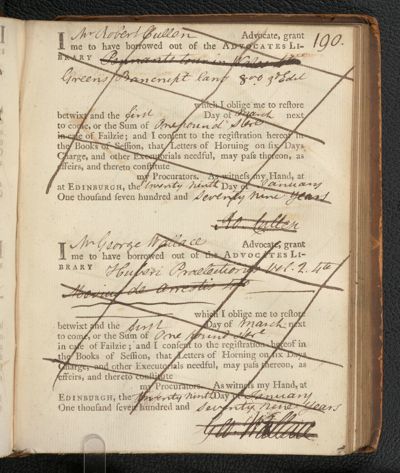 190.
I Mr Robert Cullen Advocate, grant
me to have borrowed out of the ADVOCATES LI-
BRARY
Greens Bancrupt laws 8vo 3d Edit
which I oblige me to reſtore
betwixt and the first Day of March next
to come, or the Sum of One pound Ster
in caſe of Failzie; and I conſent to the regiſtration hereof in
the Books of Seſſion, that Letters of Horning on ſix Days
Charge, and other Executorials needful, may paſs thereon, as
effeirs, and thereto conſtitute
my Procurators. As witneſs my Hand, at
at EDINBURGH, the twenty ninth Day of January
One thouſand ſeven hundred and seventy nine years
Ro. Cullen
I Mr George Wallace Advocate, grant
me to have borrowed out of the ADVOCATES LI-
BRARY Huberi Praelectiones vol. 2. 4to
which I oblige me to reſtore
betwixt and the first Day of March next
to come, or the Sum of One pound Ster
in caſe of Failzie; and I conſent to the regiſtration hereof in
the Books of Seſſion, that Letters of Horning on ſix Days
Charge, and other Executorials needful, may paſs thereon, as
effeirs, and thereto conſtitute
my Procurators. As witneſs my Hand, at
EDINBURGH, the twenty ninth Day of January
One thouſand ſeven hundred and seventy nine years
Geo. Wallace